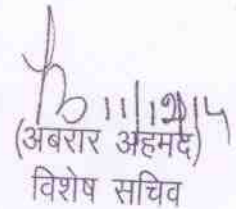 11/12/14
(अबरार अहमद)
विशेष सचिव